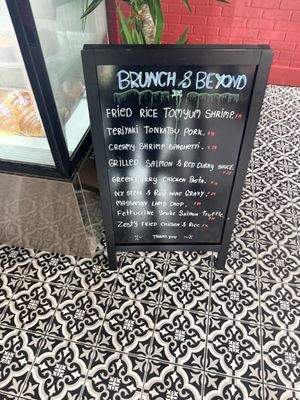 BRUNCH & BEYOND
FRIED RICE TOMYUM SHRIMP.
TERIYAKI TONKATSU PORK.
CREAMY SHRIMP SPAGHETTI.
GRILLED SALMON & RED CURRY SAUCE.
GREEN CURRY CHICKEN PASTA.
STEAK & RED WINE GRAVY.
MASSAMAN LAMB CHOP.
FETTUCCINE SMOKE SALMON TRUFFLE.
ZESTY FRIED CHICKEN & RICE
THANK YOU